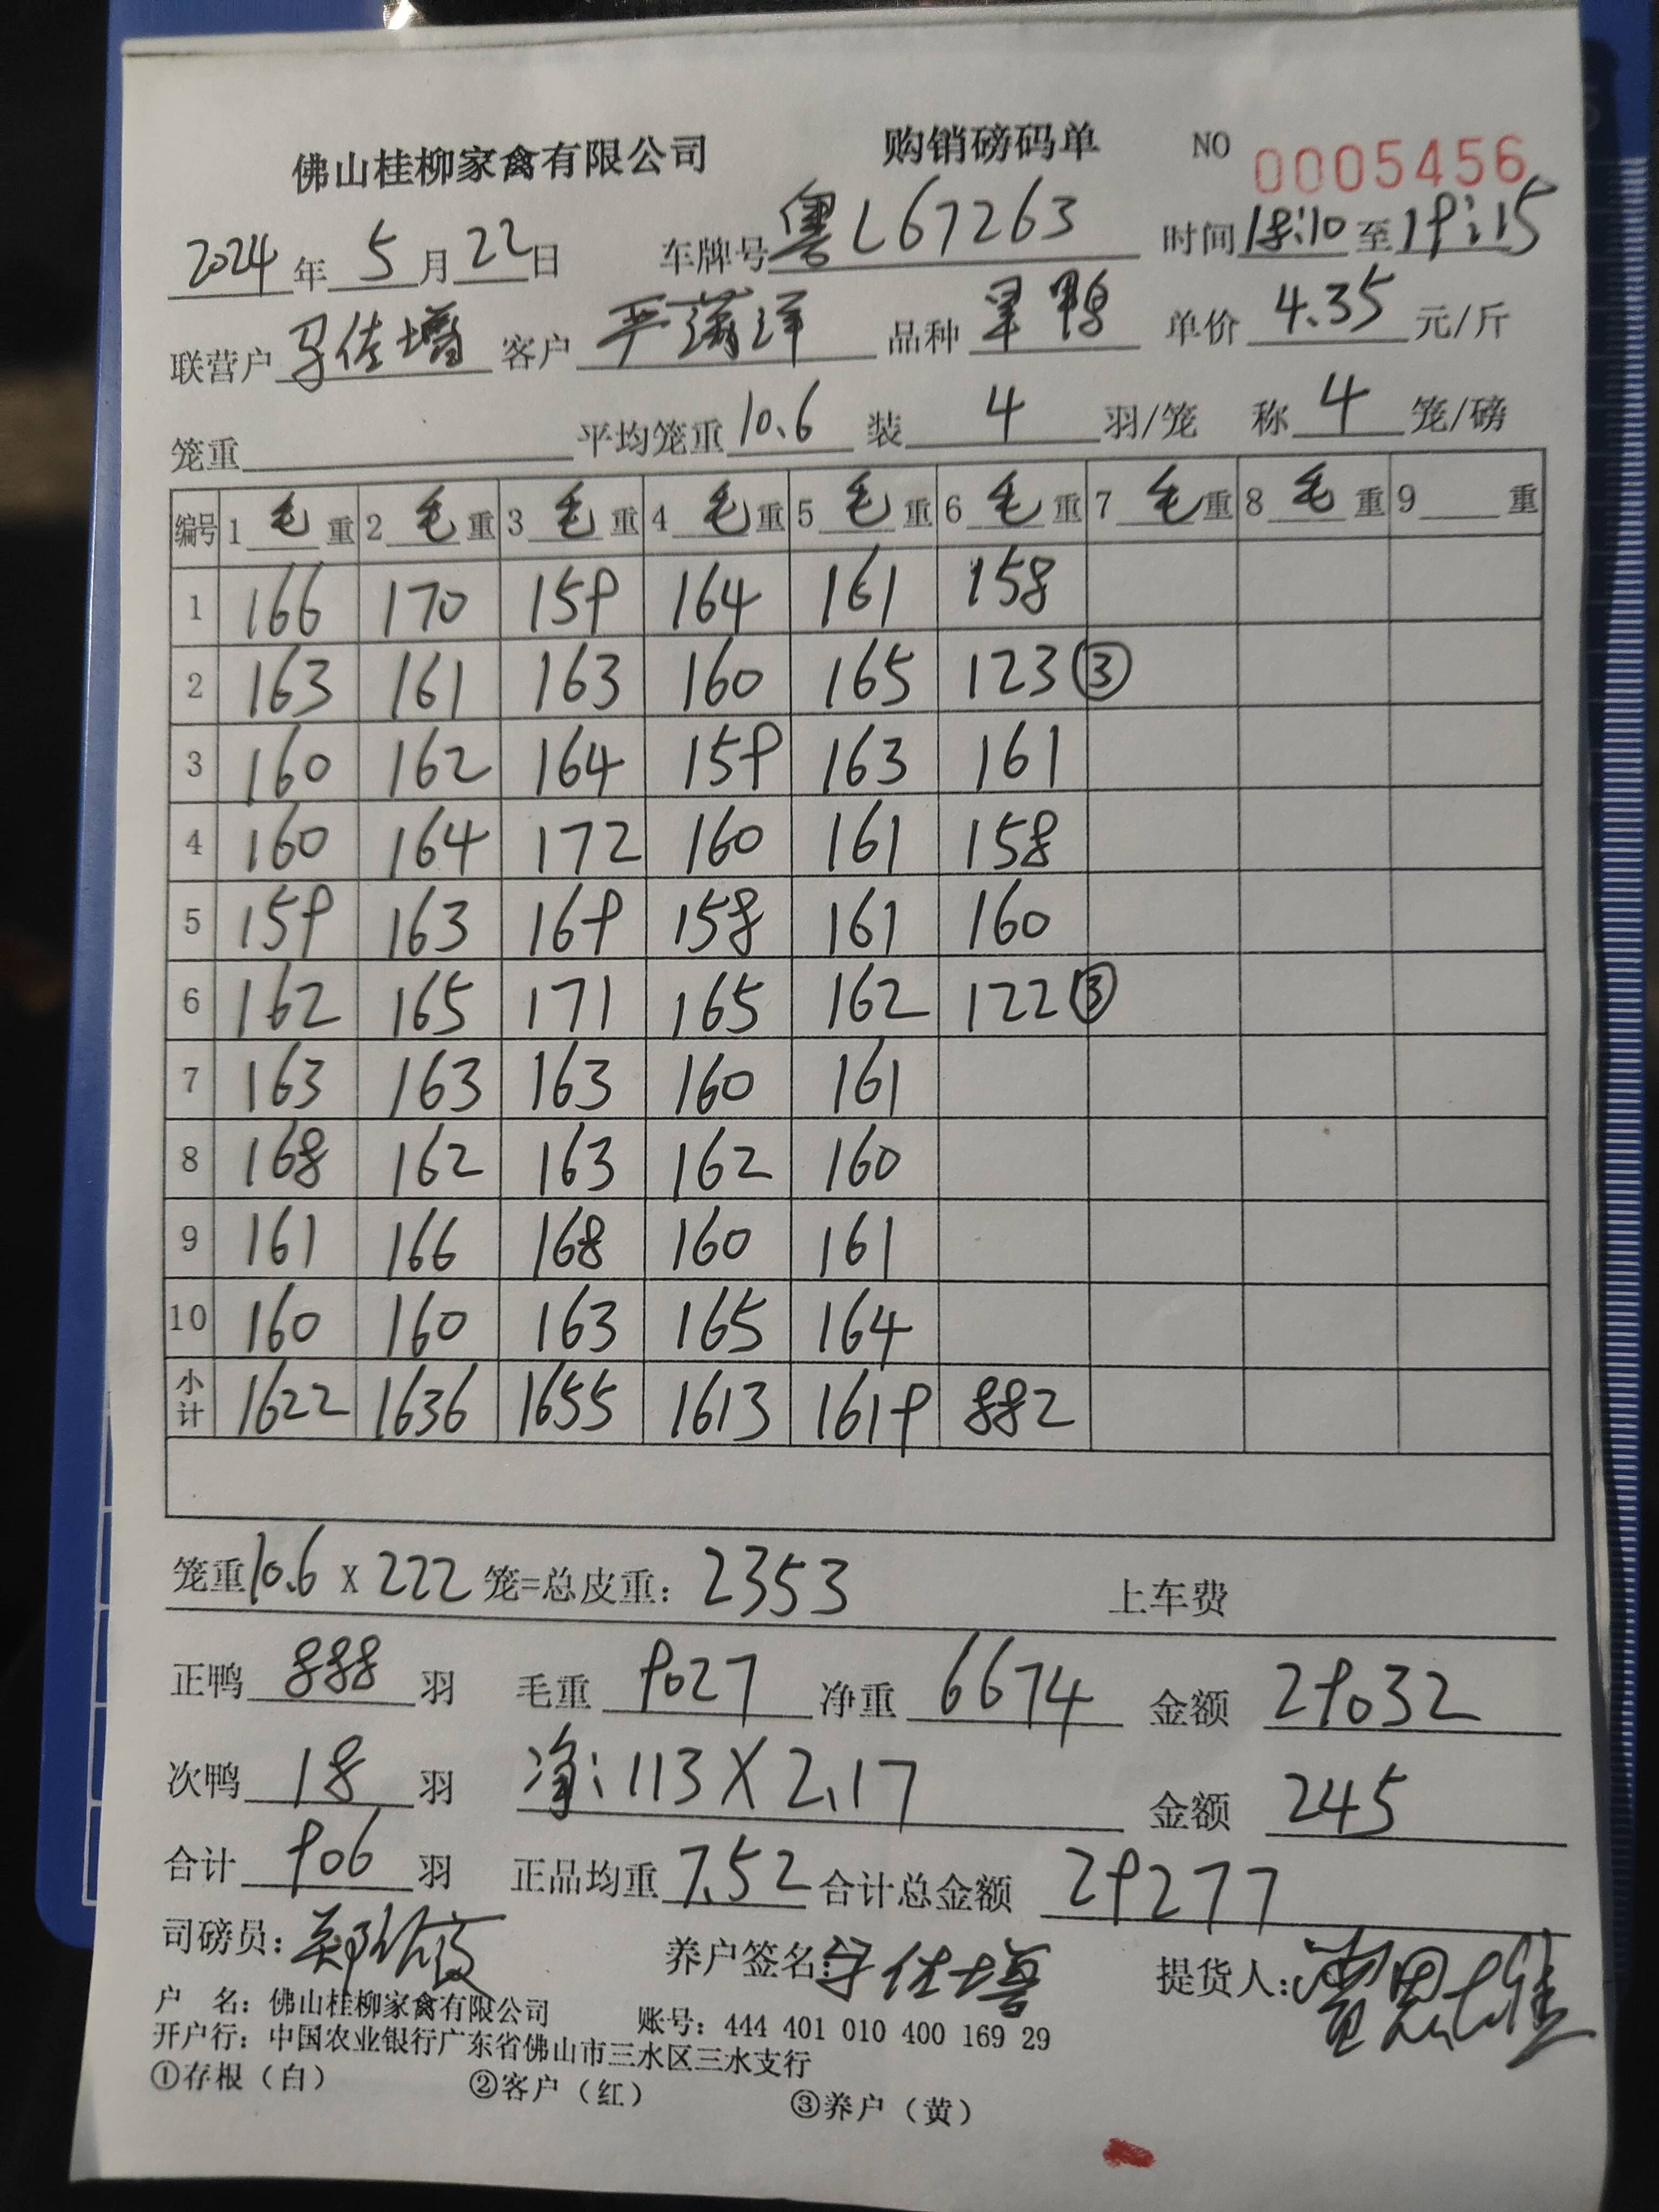 佛山桂柳家禽有限公司 购销磅码单 NO 0005456
2024年5月22日 车牌号粤L67263 时间18:10至19:15
联营户 佐增 客户 严 洋 品种 鸭 单价 4.35 元/斤
笼重 平均笼重10.6 装 4 羽/笼 称 4 笼/磅
编号 1毛重 2毛重 3毛重 4毛重 5毛重 6毛重 7毛重 8毛重 9 重
1 166 170 159 164 161 158
2 163 161 163 160 165 123 ③
3 160 162 164 159 163 161
4 160 164 172 160 161 158
5 159 163 169 158 161 160
6 162 165 171 165 162 122 ③
7 163 163 163 160 161
8 168 162 163 162 160
9 161 166 168 160 161
10 160 160 163 165 164
小计 1622 1636 1655 1613 1619 882
笼重10.6 x 222 笼=总皮重: 2353 上车费
正鸭 888 羽 毛重 9027 净重 6674 金额 29032
次鸭 18 羽 净: 113 X 2.17 金额 245
合计 906 羽 正品均重 7.52 合计总金额 29277
司磅员: 郑 养户签名: 佐增 提货人:
户 名: 佛山桂柳家禽有限公司 账号: 444 401 010 400 169 29
开户行: 中国农业银行广东省佛山市三水区三水支行
①存根（白） ②客户（红） ③养户（黄）